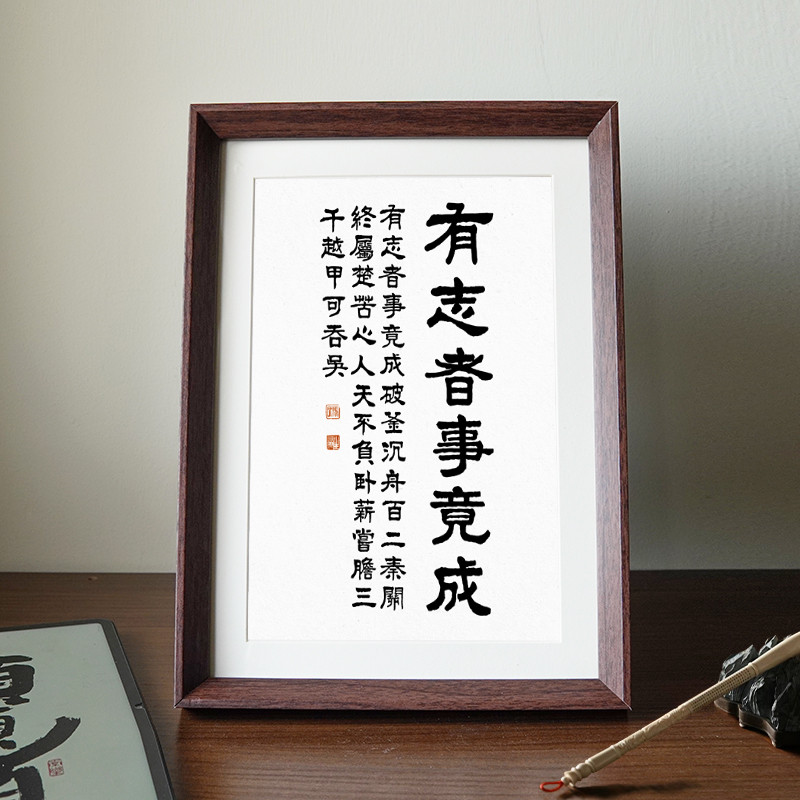 有志者事竟成
有志者事竟成破釜沉舟百二秦關
終屬楚苦心人天不負卧薪嘗膽三
千越甲可吞吳